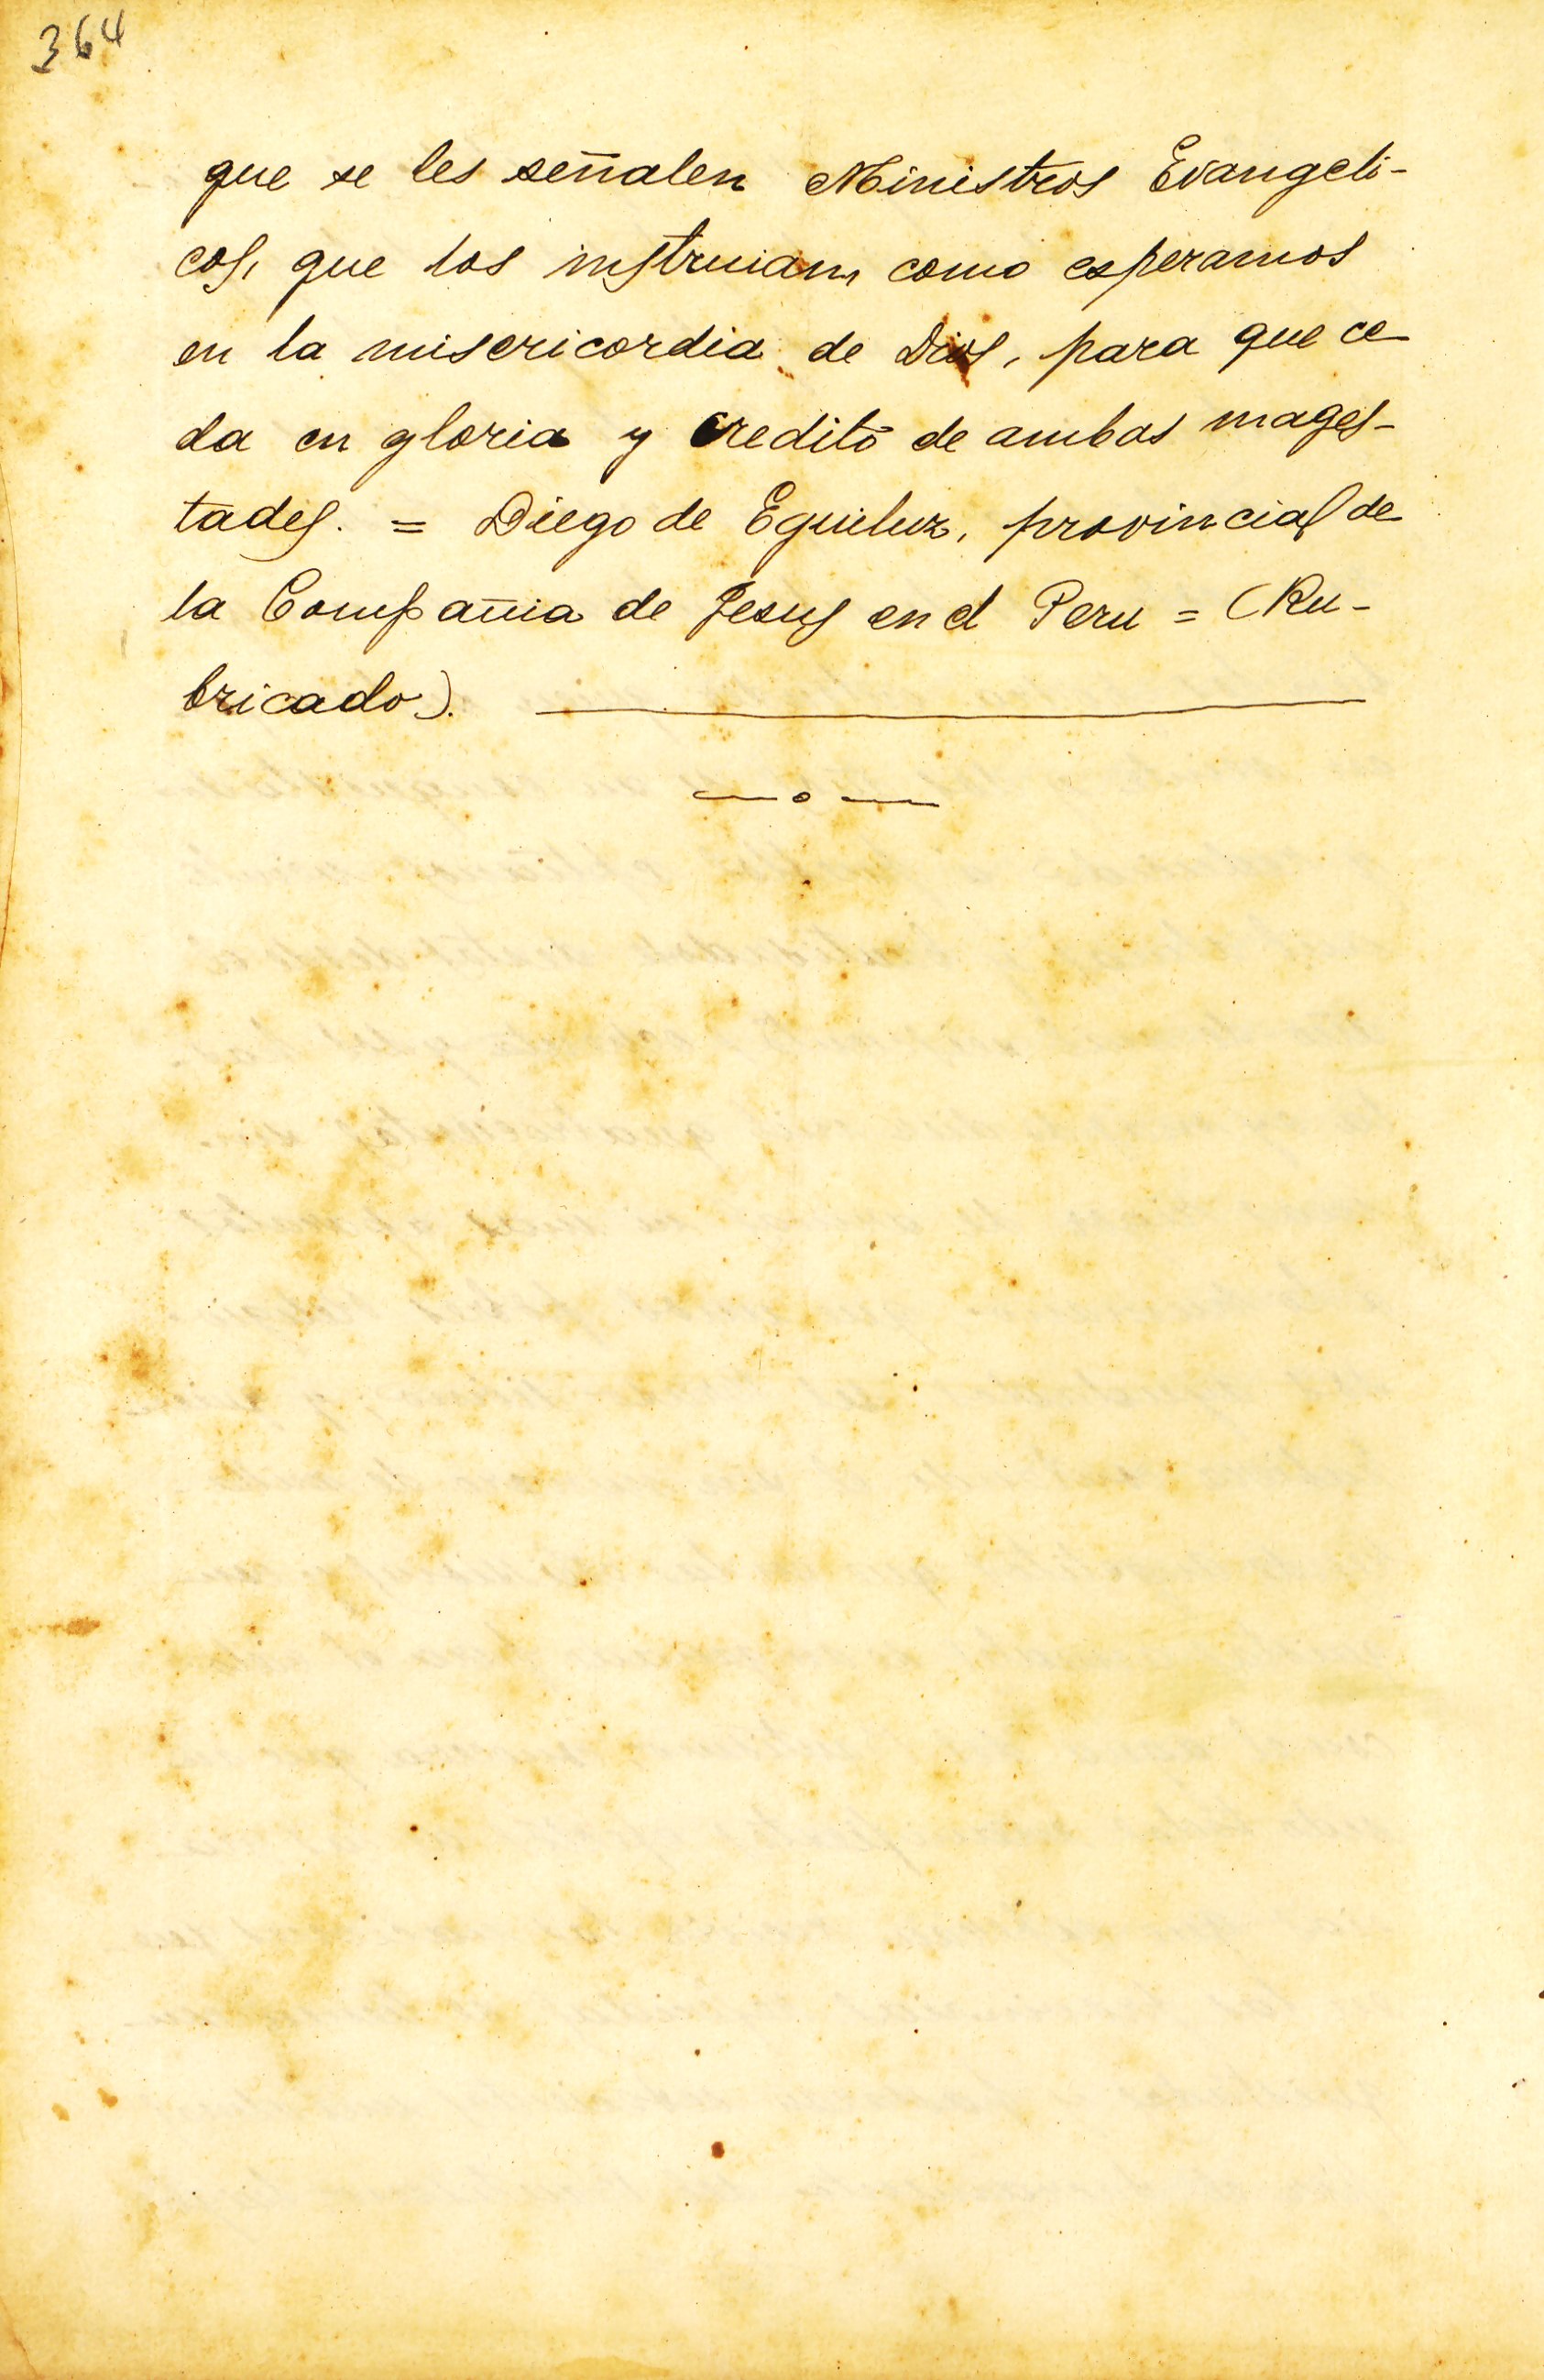 364
que se les señalen Ministros Evangeli-
cos, que los instruian, como esperamos
en la misericordia de Dios, para que ce
da en gloria y credito de ambas mages-
tades. = Diego de Eguiluz, provincial de
la Compañia de Jesus en el Peru = (Ru-
bricado).